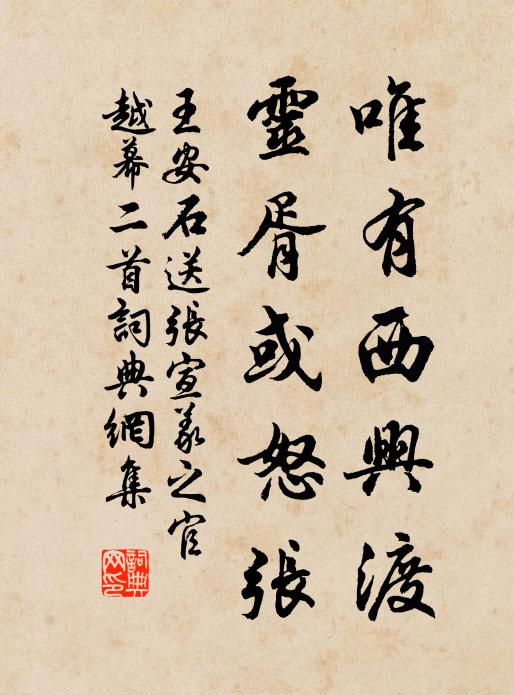 唯有西興渡
靈胥或怒張
王安石送張宣義之官
越幕二首詞典網集
詞典
网印